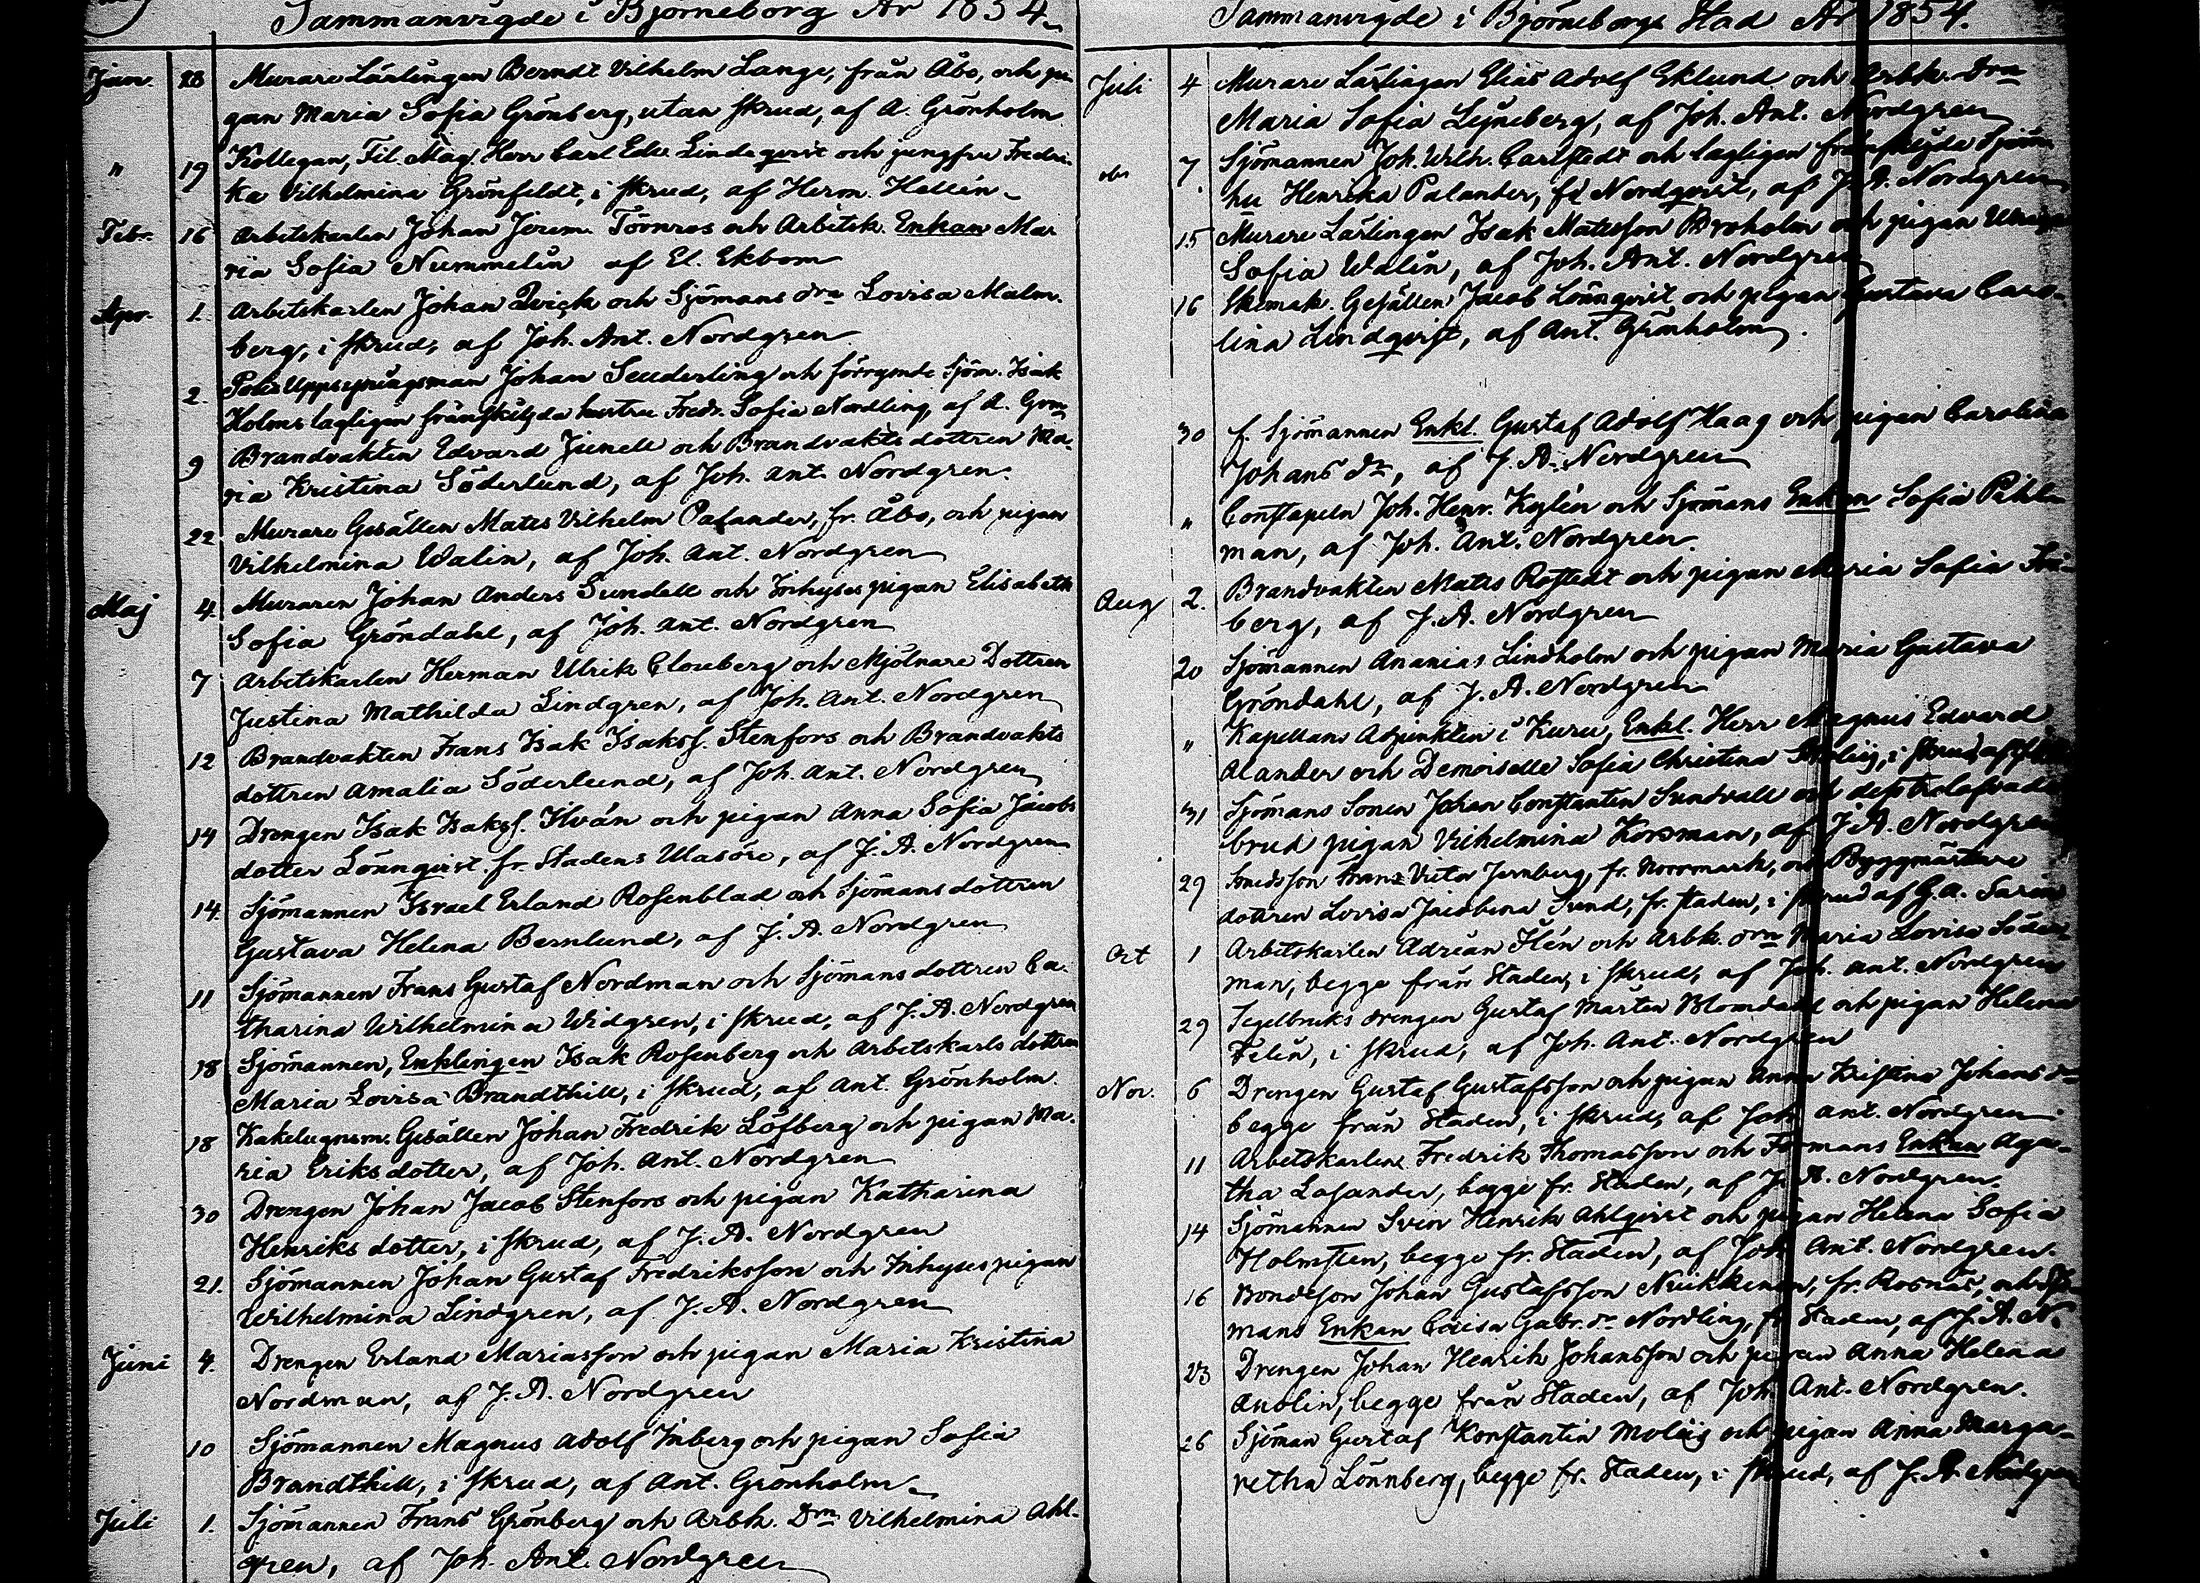 Sammanvigde i Björneborg År 1854.
Jan. 28 Murare Lärlingen Berndt Vilhelm Lange, från Åbo, och pi
gan Maria Sofia Grönberg, utan skrud, af A. Grönholm
" 19 Kollegan, Fil. Mag. Herr Carl Edv. Lindeqvist och jungfru Fredri-
ka Vilhelmina Grönfeldt, i skrud, af Herm. Hellén
Febr. 16 Arbetskarlen Johan Jerem. Törnros och Arbetsk. Enkan Mar
ria Sofia Nummelin af El. Ekbom
Apr. 1. Arbetskarlen Johan Qvick och Sjömans dra Lovisa Malm.
berg, i skrud, af Joh. Ant. Nordgren
2. Johan Senderling och förrymde Sjöm. Isak
Holms lagligen frånskilda hustru Fredr. Sofia Nordling, af A. Grm
9 Brandvakten Edvard Junell och Brandvakts dottren Ma-
ria Kristina Söderlund, af Joh. Ant. Nordgren.
22 Murare Gesällen Mats Vilhelm Palander, fr. Åbo, och pigan
Vilhelmina Walin, af Joh. Ant. Nordgren
Maj 4. Muraren Johan Anders Sundell och Inhyses pigan Elisabeth
Sofia Gröndahl, af Joh. Ant. Nordgren
7 Arbetskarlen Herman Ulrik Clouberg och Mjölnare Dottren
Justina Mathilda Lindgren, af Joh. Ant. Nordgren
12 Brandvakten Frans Isak Isakss. Stenfors och Brandvakts
dottren Amalia Söderlund, af Joh. Ant. Nordgren
14 Drengen Isak Isakss. Ilván och pigan Anna Sofia Jacobs
dotter Lönnqvist fr. Stadens Ulasöre, af J. A. Nordgren
14. Sjömannen Israel Erland Rosenblad och Sjömans dottren
Gustava Helena Bernlund, af J. A. Nordgren
11 Sjömannen Frans Gustaf Nordman och Sjömans dottren Ca-
tharina Wilhelmina Widgren, i skrud, af J. A. Nordgren
18 Sjömannen, Enklingen Isak Rosenberg och Arbetskarls dottren
Maria Lovisa Brandthill, i skrud, af Ant. Grönholm.
18 Kakelugnsm. Gesällen Johan Fredrik Löfberg och pigan Ma-
ria Eriksdotter, af Joh. Ant. Nordgren
30 Drengen Johan Jacob Stenfors och pigan Katharina
Henriks dotter, i skrud, af J. A. Nordgren
21. Sjömannen Johan Gustaf Fredriksson och Inhyses pigan
Wilhelmina Lindgren, af J. A. Nordgren
Juni 4. Drengen Erland Mariasson och pigan Maria Kristina
Nordman, af J. A. Nordgren
10 Sjömannen Magnus Adolf Inberg och pigan Sofia
Brandthill, i skrud, af Ant. Grönholm
Juli 1. Sjömannen Frans Grönberg och Arbk. Drn Vilhelmina Ahl-
gren, af Joh. Ant. Nordgren
Sammanvigde i Björneborgs Stad År 1854.
Juli 4 Murare Lärlingen Elias Adolf Eklund och Arbk. dra
Maria Sofia Ljuneberg, af Joh. Ant. Nordgren
7. Sjömannen Joh. Wilh. Carlstedt och lagligen frånskilda Sjöm.
hu Henrika Palander, fd Nordqvist, af J. A. Nordgren
15 Murare Lärlingen Isak Matsson Broholm och pigan
Sofia Walin, af Joh. Ant. Nordgren
16 Skomak. Gesällen Jacob Lönnqvist och pigan Gustava Caro-
lina Lindqvist, af Ant. Grönholm.
30 f. Sjömannen Enkl. Gustaf Adolf Haag och pigan Carolina
Johans dr, af J. A. Nordgren
" Constapeln Joh. Henr. Kylén och Sjömans Enkan Sofia Pihl-
man, af Joh. Ant. Nordgren.
Aug 2. Brandvakten Mats Rostedt och pigan Maria Sofia
berg, af J. A. Nordgren
20 Sjömannen Ananias Lindholm och pigan Maria Gustava
Gröndahl, af J. A. Nordgren
" Kapellans Adjunkten i Kuru, Enkl. Herr Magnus Edvard
Alander och Demoiselle Sofia Christina i skrud, af
31 Sjömans Sonen Johan Constantin Sundvall och dess
brud pigan Vilhelmina Korsman, af J. A. Nordgren
29 Smedsson Frans Victor Jernberg, fr. Norrmark, och Byggmästare
dottren Lovisa Jacobina Sund, fr. staden, i skrud af G. A.
Oct 1 Arbetskarlen Adrian Ilén och Arbk. drn Maria Lovisa Söder-
man, begge från Staden, i skrud, af Joh. Ant. Nordgren
29 Tegelbruks drengen Gustaf Mårten Blomdahl och pigan Helena
Felin, i skrud, af Joh. Ant. Nordgren
Nov. 6 Drengen Gustaf Gustafsson och pigan Anna Kristina Johans dr
begge från Staden, i skrud, af Joh. Ant. Nordgren
11 Arbetskarlen Fredrik Thomasson och Formans Enkan Aga-
tha Lasander, begge fr. Staden, af J. A. Nordgren.
14 Sjömannen Sven Henrik Ahlqvist och pigan Helena Sofia
Holmsten, begge fr. Staden, af Joh. Ant. Nordgren.
16 Bondeson Johan Gustafsson Nukkinen, fr. Rosnäs, och Sjö
mans Enkan Caisa Gabr. dr Nordling, fr. Staden, af J. A. N.
23 Drengen Johan Henrik Johansson och pigan Anna Helena
Anolin, begge från Staden, af Joh. Ant. Nordgren.
26 Sjöman Gustaf Konstantin Moliis och pigan Anna Marga-
retha Lönnberg, begge fr. Staden, i skrud, af J. A. Nordgren